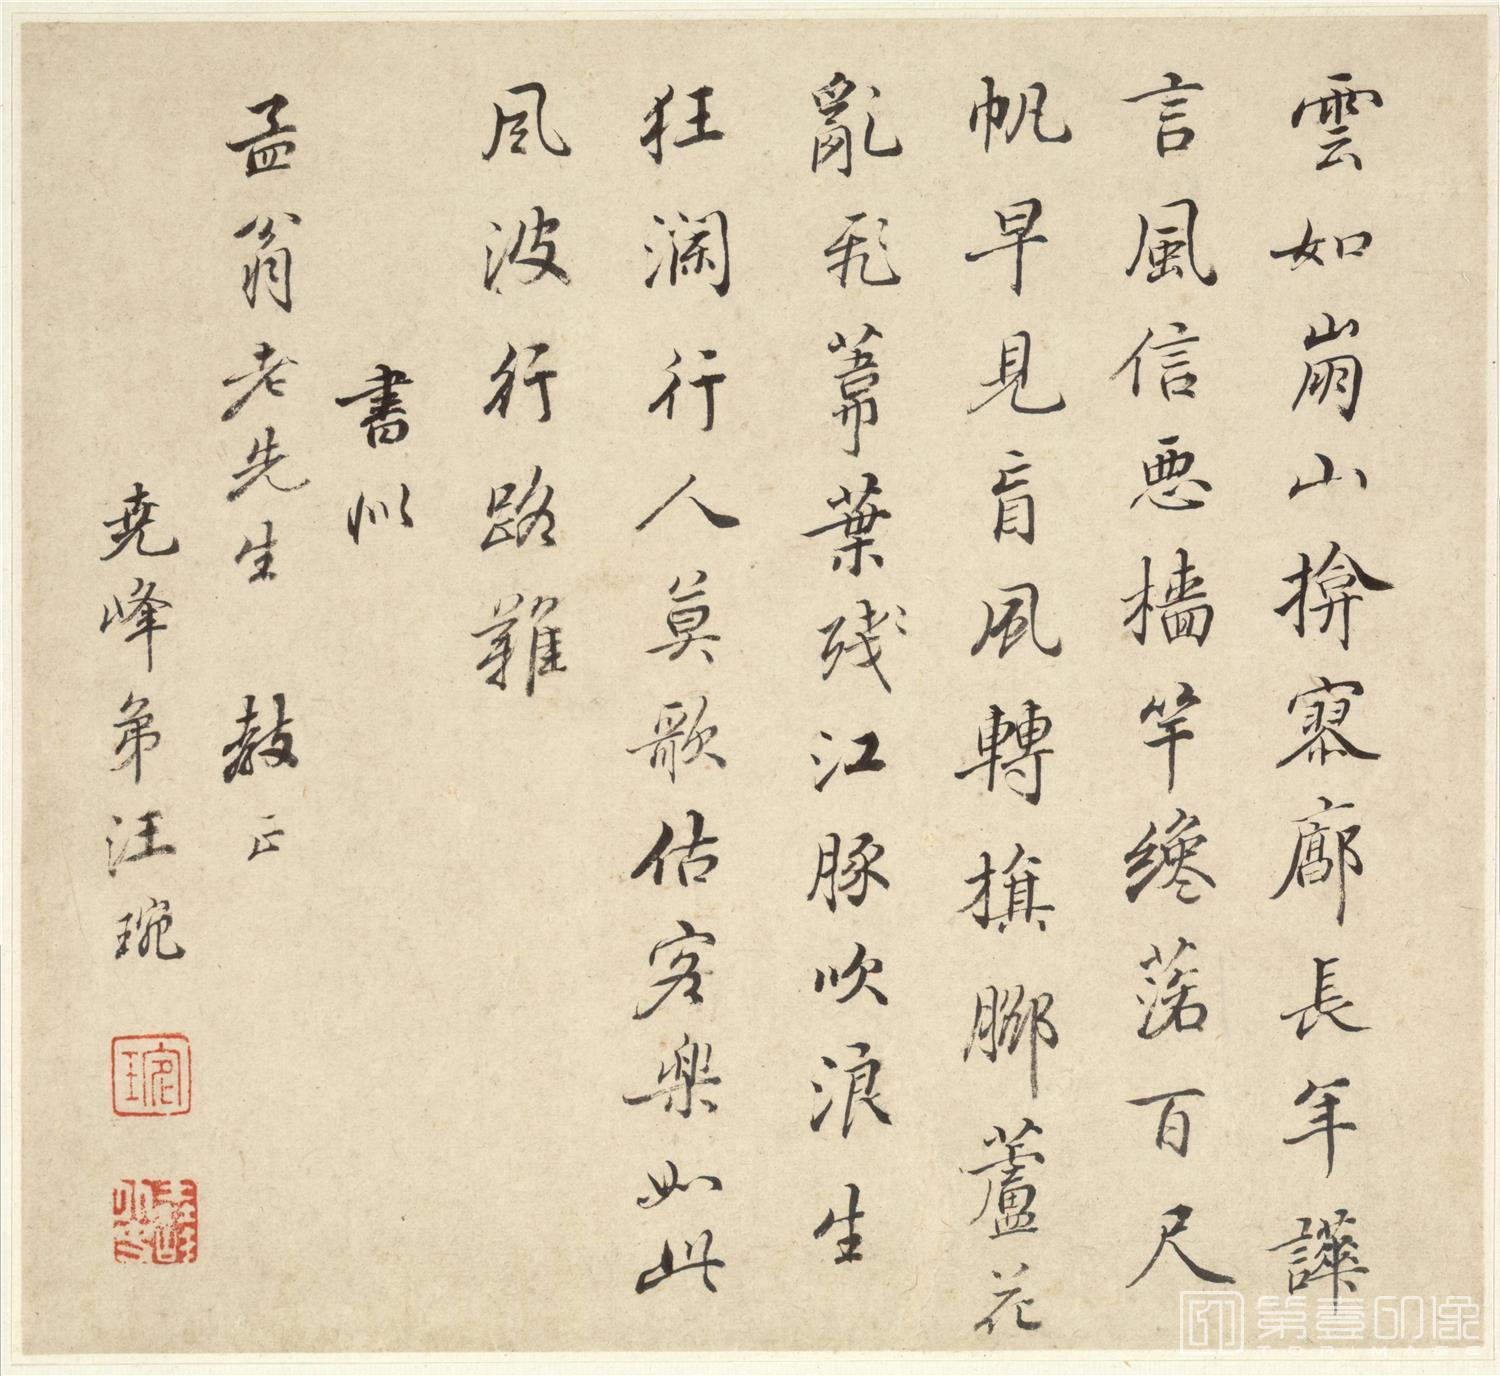 雲如崩山揜寥廓長年譁
言風信惡檣竿纔落百尺
帆早見盲風轉旗腳蘆花
亂飛葦葉殘江豚吹浪生
狂瀾行人莫歌估客樂如此
風波行路難
書似
孟翁老先生 教正
堯峰弟汪琬
第壹印像
TOPIMAGE